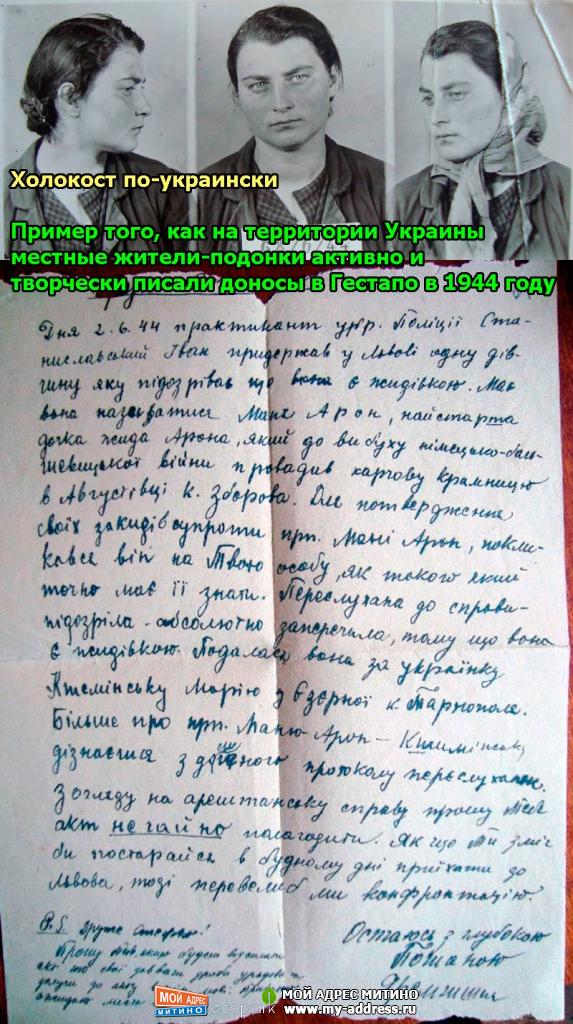 Холокост по-украински
Пример того, как на территории Украины
местные жители-подонки активно и
творчески писали доносы в Гестапо в 1944 году
Дня 2.6.44 практикант укр. Поліції Ста-
ниславський Іван придержав у Львові одну дів-
чину яку підозрівав що вона є жидівкою. Має
вона називатися Маня Арон, найстарша
дочка жида Арона, який до вибуху німецько-боль-
шевицької війни провадив харчову крамницю
в Августівці к. Зборова. Для потвердження
своїх закидів супроти прт. Мані Арон, покли-
кався він на Твою особу, як такого який
точно має її знати. Переслухана до справи-
підозріла - абсолютно заперечила, тому що вона
є жидівкою. Подалась вона за українку
Марію з Озерної к. Тарнополя.
Більше про прт. Маню Арон -
дізнаєшся з протоколу переслухань.
З огляду на арештанську справу прошу Тебе
акт негайно полагодити. Як що Ти зміг
би постарайся в будному дні приїхати до
Львова, тоді перевелиб ми конфронтацію.
Остаюсь з глубокою
Пошаною
P.S. Друже Стефане!
Прошу
акт
МОЙ АДРЕС
МИТИНО
МОЙ АДРЕС МИТИНО
www.my-address.ru